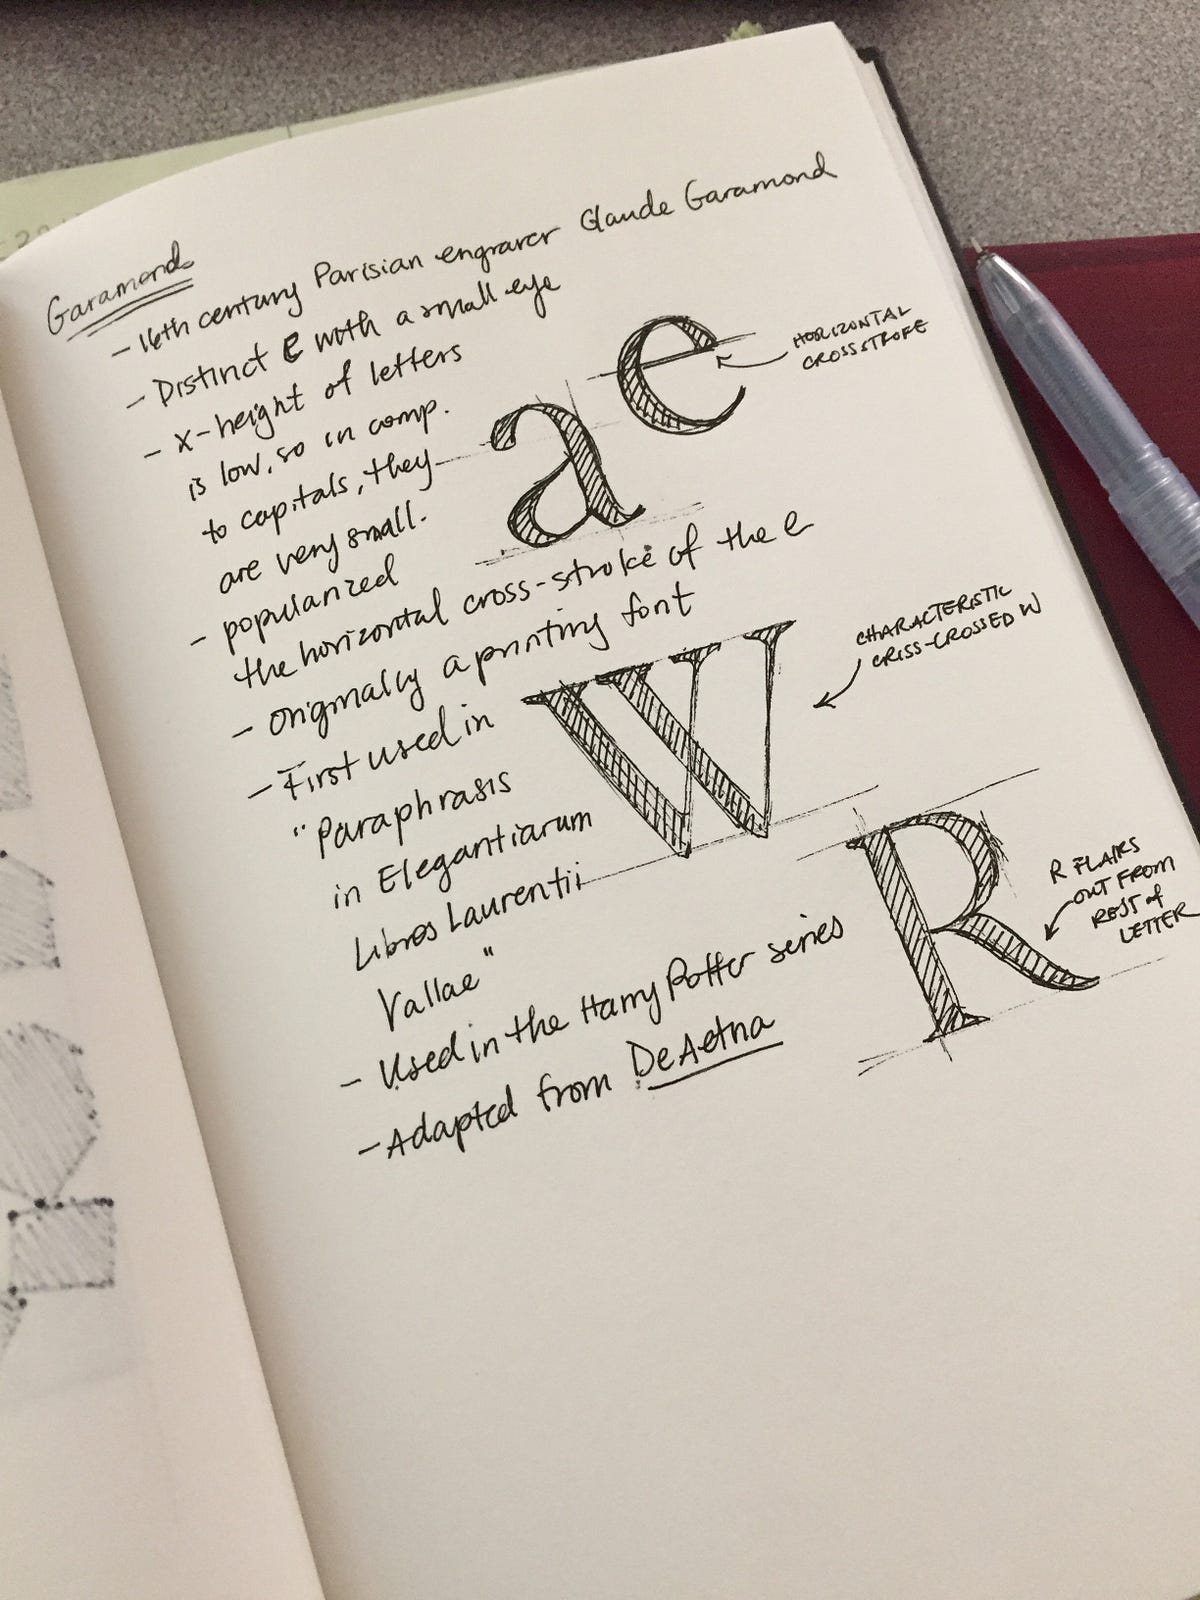 Garamond
- 16th century Parisian engraver Claude Garamond
- Distinct e with a small eye
- x-height of letters
is low, so in comp.
to capitals, they
are very small.
- popularized
the horizontal cross-stroke of the e
- originally a printing font
- First used in
"Paraphrasis
in Elegantiarum
Libros Laurentii
Vallae"
- Used in the Harry Potter series
- Adapted from De Aetna
e
HORIZONTAL
CROSS STROKE
a
W
CHARACTERISTIC
CRISS-CROSSED W
R
R FLAIRS
OUT FROM
REST of
LETTER